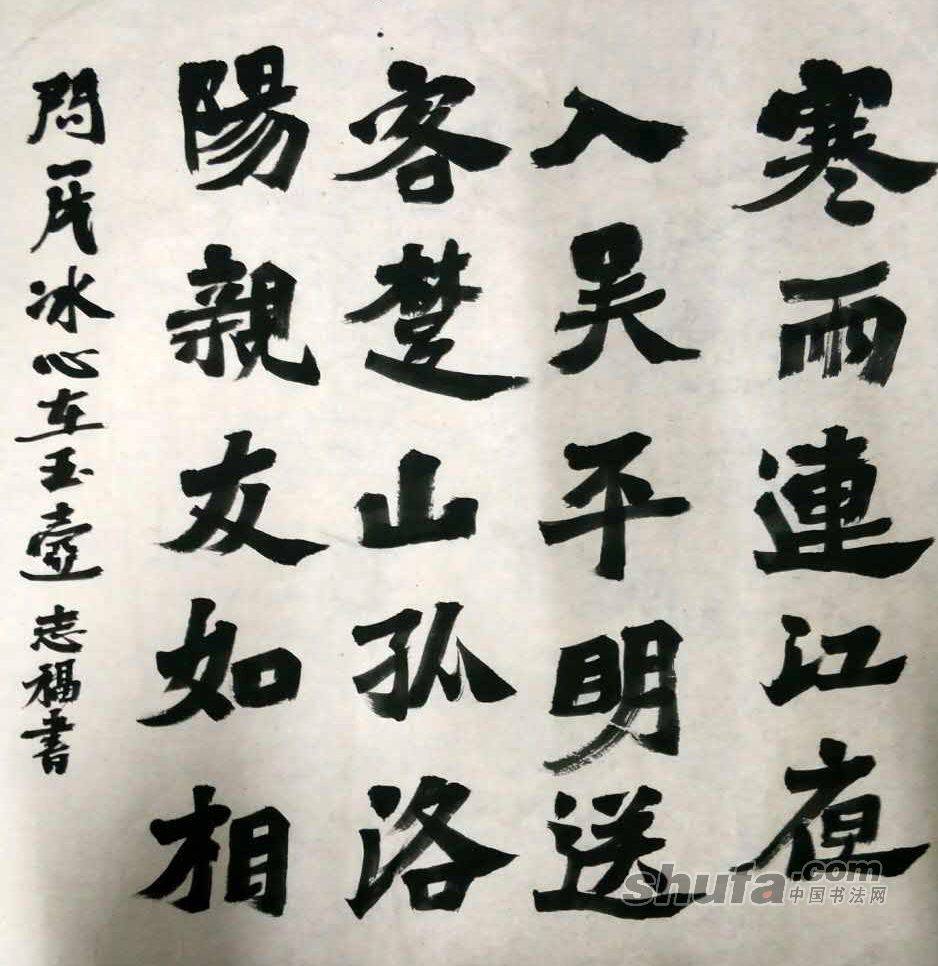 寒雨連江夜
入吴平明送
客楚山孤洛
陽親友如相
問一片冰心在玉壺 志福書
shufa.com
中国书法网